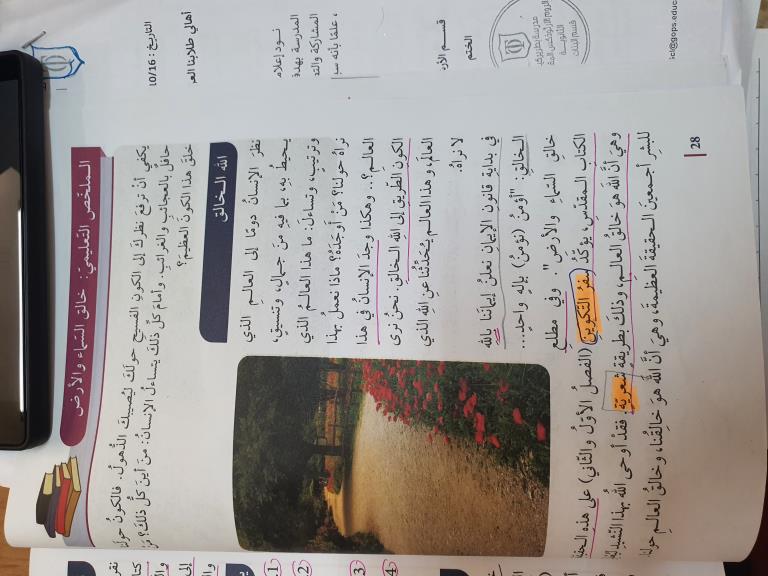 الملخّص التعليميّ: خالق السّماء والأرض
يكفي أنْ ترفعَ نظرَكَ إلى الكونِ الفسيحِ حولَكَ ليُصيبَكَ الذّهولُ. فالكونُ حولَنا
حافلٌ بالعجائبِ والغرائبِ. وأمامَ كلِّ ذلكَ يتساءلُ الإنسانُ: منْ أينَ كلُّ ذلكَ؟ مَنْ
خلقَ هذا الكونَ العظيمَ؟
الله الخالق
نظرَ الإنسانُ دومًا إلى العالمِ الذي
يحيطُ بهِ، بما فيهِ منْ جمالٍ، وتنسيقٍ،
وترتيبٍ، وتساءلَ: ما هذا العالمُ الذي
نراهُ حولَنا؟ مَنْ أوجدَهُ؟ ماذا نعملُ بهذا
العالمِ؟.. وهكذا وجدَ الإنسانُ في هذا
الكونِ الطّريقَ إلى اللهِ الخالقِ. نحنُ نرى
العالمَ، وهذا العالمُ يُحَدِّثُنا عنِ اللهِ الذي
لا نراهُ.
في بدايةِ قانونِ الإيمانِ نعلنُ إيمانَنا باللهِ
الخالقِ: "أؤمنُ (نؤمنُ) بإلهٍ واحدٍ...
خالقِ السّماءِ والأرضِ". وفي مطلعِ
الكتابِ المقدّسِ، يؤكّدُ سِفرُ التّكوينِ (الفصلُ الأوّلُ والثّاني) على هذهِ
وهيَ أنَّ اللهَ هوَ خالقُ العالمِ، وذلكَ بطريقةٍ شعريّةٍ. فقدْ أوحى اللهُ بهذا
للبشرِ أجمعينَ الحقيقةَ العظيمةَ، وهيَ أنَّ اللهَ هوَ خالقُنا، وخالقُ العالمِ حولَنا
28
التاريخ : 10/16
أهالي طلابنا
نود إعلام
المدرسة بهدف
المشاركة والتد
، علمًا بأنه
قسم
الختم
مدرسة بطريركية
الروم الأرثوذكس
الثانوية
قسم البنات
ic@gops.educ
1.
2.
3
4